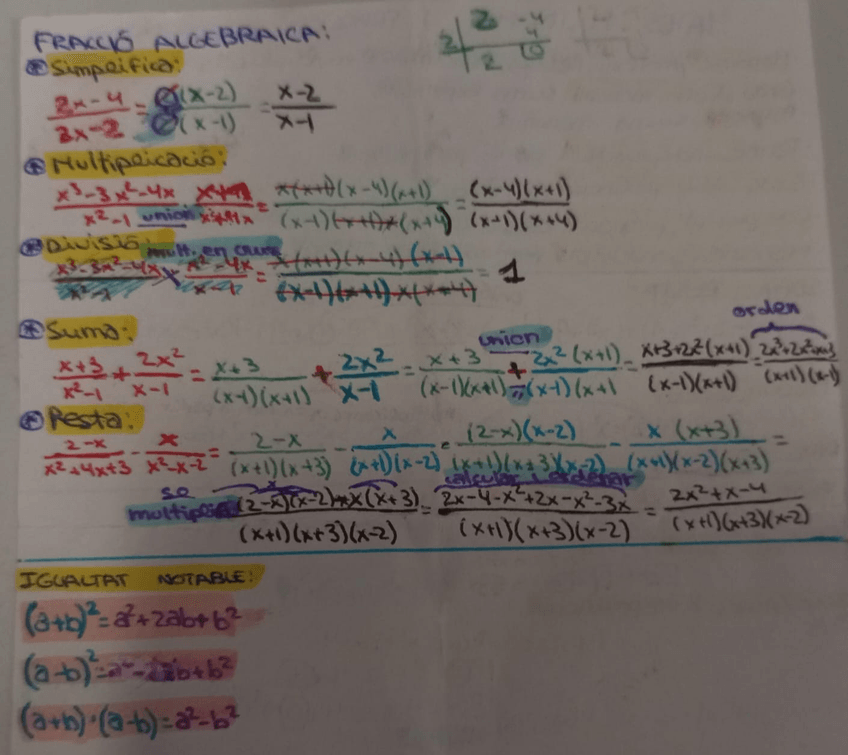 FRACCIÓ ALGEBRAICA:
2 | 2 -4
4
2 0
* Simplifica:
(2x-4)/(2x-2) = 2(x-2)/2(x-1) = (x-2)/(x-1)
* Multiplicació:
(x³-3x²-4x)/(x²-1) union = x(x+1)(x-4)(x+1)/(x-1)(x+1)x(x+4) = (x-4)(x+1)/(x+1)(x+4)
* Divisió: mult. en cruz
(x³-3x²-4x) × (x²-4x)/(x-1) = x(x+1)(x-4)(x-1)/(x-1)(x+1)x(x-4) = 1
orden
* Suma: union
(x+3)/(x²-1) + 2x²/(x-1) = (x+3)/(x-1)(x+1) + 2x²/(x-1) = (x+3)/(x-1)(x+1) + 2x²(x+1)/(x-1)(x+1 = (x+3+2x²(x+1))/(x-1)(x+1) = (2x³+2x²+x+3)/(x+1)(x-1)
* Resta:
(2-x)/(x²+4x+3) - x/(x²-x-2) = (2-x)/(x+1)(x+3) - x/(x+1)(x-2) = (2-x)(x-2)/(x+1)(x+3)(x-2) - x(x+3)/(x+1)(x-2)(x+3) =
se multiplica calcular i ordenar
(2-x)(x-2)-x(x+3)/(x+1)(x+3)(x-2) = (2x-4-x²+2x-x²-3x)/(x+1)(x+3)(x-2) = (2x²+x-4)/(x+1)(x+3)(x-2)
IGUALTAT NOTABLE:
(a+b)²=a²+2ab+b²
(a-b)²=a²-2ab+b²
(a+b)·(a-b)=a²-b²